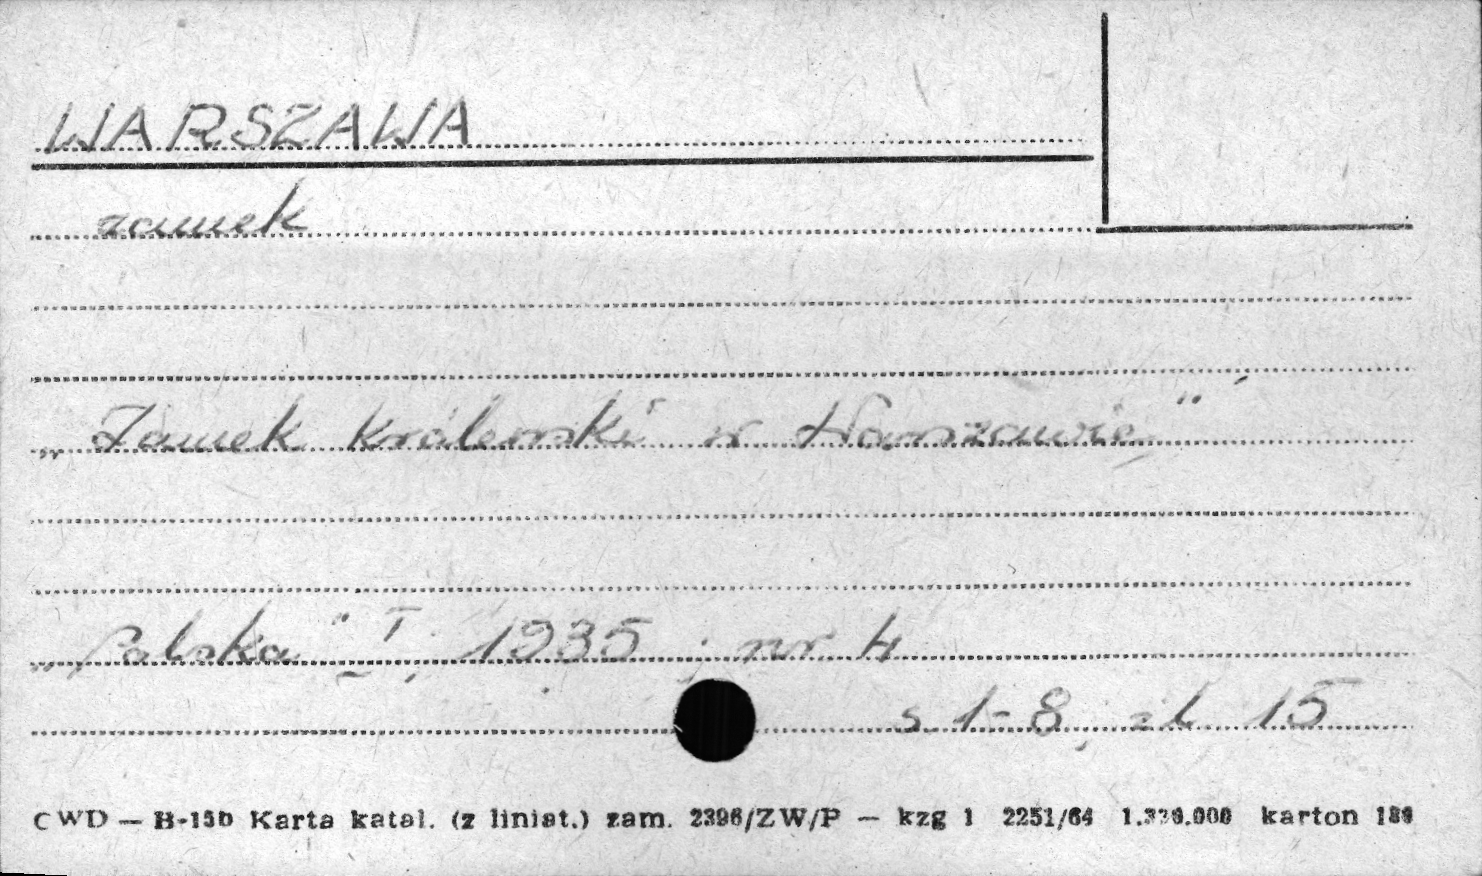 WARSZAWA
zamek
„Zamek Królewski w Warszawie"
„Polska" I, 1935, nr 4
s. 1-8, il. 15
CWD — B-15b Karta katal. (z liniat.) zam. 2396/ZW/P — kzg 1 2251/64 karton